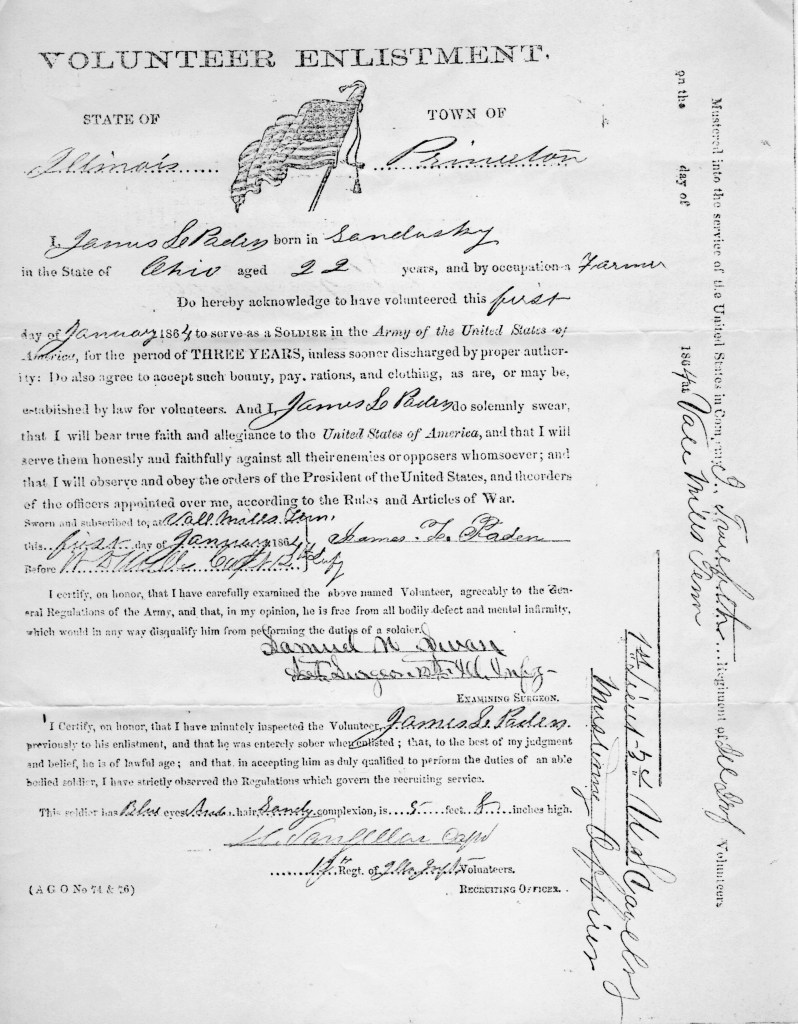 VOLUNTEER ENLISTMENT.
STATE OF
TOWN OF
Illinois
Princeton
I, James L Paden born in Sandusky
in the State of Ohio aged 22 years, and by occupation a Farmer
Do hereby acknowledge to have volunteered this first
day of January 1864 to serve as a SOLDIER in the Army of the United States of
America, for the period of THREE YEARS, unless sooner discharged by proper author-
ity: Do also agree to accept such bounty, pay, rations, and clothing, as are, or may be,
established by law for volunteers. And I, James L Paden do solemnly swear,
that I will bear true faith and allegiance to the United States of America, and that I will
serve them honestly and faithfully against all their enemies or opposers whomsoever; and
that I will observe and obey the orders of the President of the United States, and the orders
of the officers appointed over me, according to the Rules and Articles of War.
Sworn and subscribed to, at Vall Mills Tenn,
this first day of January 1864 James L. Paden
Before Capt
I certify, on honor, that I have carefully examined the above named Volunteer, agreeably to the Gen-
eral Regulations of the Army, and that, in my opinion, he is free from all bodily defect and mental infirmity,
which would in any way disqualify him from performing the duties of a soldier.
Samuel N Swan
Surgeon Ill. Infy
EXAMINING SURGEON.
I Certify, on honor, that I have minutely inspected the Volunteer, James L Paden
previously to his enlistment, and that he was enterely sober when enlisted; that, to the best of my judgment
and belief, he is of lawful age; and that in accepting him as duly qualified to perform the duties of an able
bodied soldier, I have strictly observed the Regulations which govern the recruiting service.
This soldier has Blue eyes hair, Sandy complexion, is 5 feet 8 inches high.
Capt
Regt. of Volunteers.
RECRUITING OFFICER.
(A G O No 74 & 76)
Mustered into the service of the United States in Company Regiment of Ill Inf Volunteers
on the day of 1864 at Vale Mills Tenn
1st Lieut 3d U S Cavalry
Mustering Officer